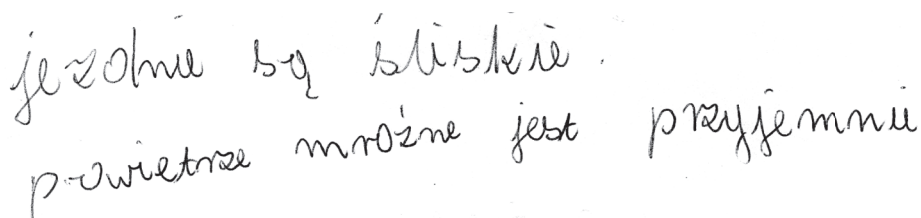 jezdnie są śliskie.
powietrze mroźne jest przyjemnie